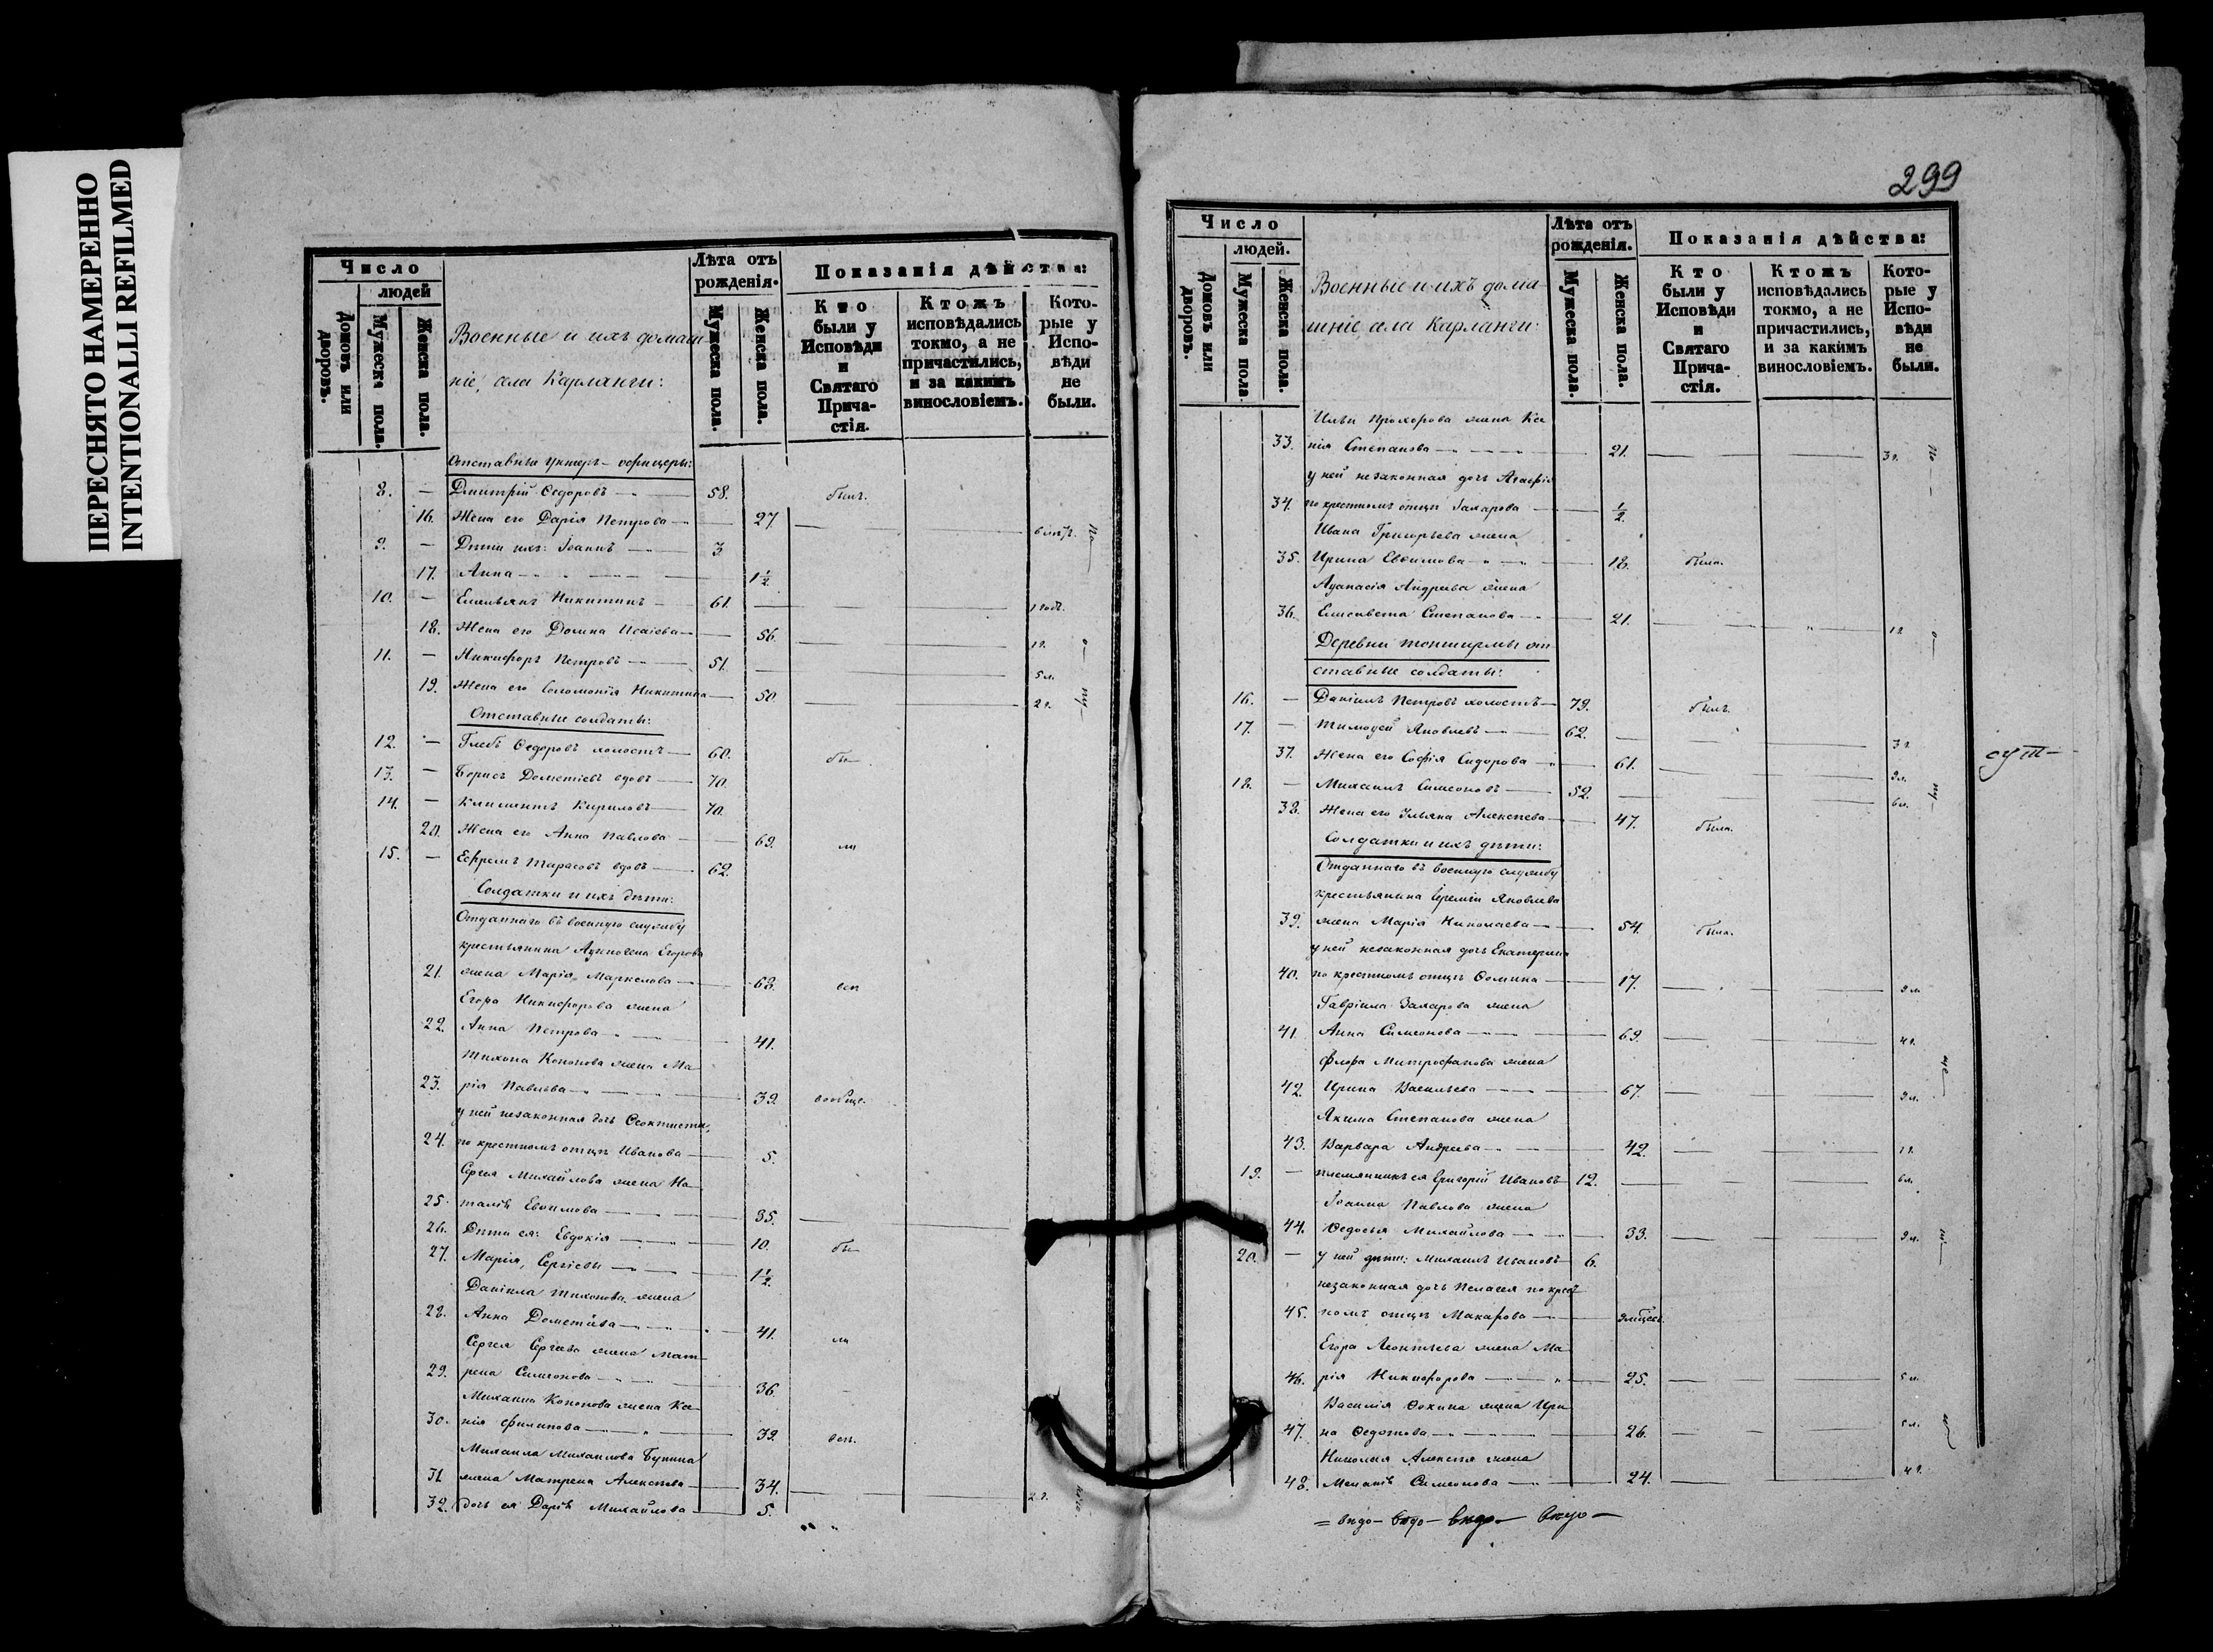 ПЕРЕСНЯТО НАМЕРЕННО
INTENTIONALLI REFILMED
Число
людей
Домовъ или дворовъ.
Мужеска пола.
Женска пола.
Военные и ихъ домаш
ніе, села Карланги:
Лѣта отъ рожденія.
Мужеска пола.
Женска пола.
Показанія дѣйства:
Кто были у Исповѣди и Святаго Причастія.
Ктожъ исповѣдались токмо, а не причастились, и за какимъ винословіемъ.
Которые у Исповѣди не были.
Отставные унтеръ-офицеры:
8. — Дмитрій Ѳедоровъ — 58. былъ.
16. Жена его Дарія Петрова — 27.
9. — Дѣти ихъ: Іоаннъ — 3
17. Анна — 1½
10. — Емельянъ Никитинъ — 61. 1 годъ.
18. Жена его Домна Исаіева — 56. 1 г.
11. — Никифоръ Петровъ — 51. 5 л.
19. Жена его Соломонія Никитина — 50. 2 г.
Отставные солдаты:
12. — Глебъ Ѳедоровъ холостъ — 60. бы—
13. — Борисъ Дометіевъ вдовъ — 70.
14. — Климентъ Кириловъ — 70.
20. Жена его Анна Павлова — 69. ли
15. — Ефремъ Тарасовъ вдовъ — 62.
Солдатки и ихъ дѣти:
Отданнаго въ военную службу
крестьянина Егорова
21. жена Марія Маркелова — 63. всѣ
Егора Никифорова жена
22. Анна Петрова — 41.
Тихона Кононова жена Ма
23. рія Павлова — 39. вообще.
у ней незаконная дочь Ѳеоктиста,
24. по крестномъ отцѣ Иванова — 5.
Сергея Михайлова жена На
25. талія Евѳимова — 35.
26. Дѣти ея: Евдокія — 10. бы—
27. Марія, Сергіевы — 1½
Даніила Тихонова жена
28. Анна Дометіева — 41. ли
Сергея Сергеева жена Мат
29. рена Симеонова — 36.
Михаила Кононова жена Ксе
30. нія Филипова — 39. всѣ.
Михаила Михаилова Бунина
31. жена Матрена Алексѣева — 34.
32. дочь ея Дарія Михайлова — 5. 2 г.
299
Число
людей.
Домовъ или дворовъ.
Мужеска пола.
Женска пола.
Военные и ихъ дома
шніе, села Карланги:
Лѣта отъ рожденія.
Мужеска пола.
Женска пола.
Показанія дѣйства:
Кто были у Исповѣди и Святаго Причастія.
Ктожъ исповѣдались токмо, а не причастились, и за какимъ винословіемъ.
Которые у Исповѣди не были.
Ильи Прохорова жена Ксе
33. нія Степанова — 21. 3 г.
у ней незаконная дочь Агафія
34. по крестномъ отцѣ Захарова — ½.
Ивана Григорьева жена
35. Ирина Евѳимова — 18. была.
Аѳанасія Андреева жена
36. Елисавета Степанова — 21. 1 г.
Деревни Топтирмы от
ставные солдаты:
16. — Даніилъ Петровъ холостъ — 79. былъ.
17. — Тимоѳей Яковлевъ — 62. 3 г.
37. Жена его Софія Сидорова — 61. 9 л.
18. — Михаилъ Симеоновъ — 52. 6 л.
38. Жена его Ульяна Алексѣева — 47. была.
Солдатки и ихъ дѣти:
Отданнаго въ военную службу
крестьянина Іереміи Яковлева
39. жена Марія Николаева — 54. была.
у ней незаконная дочь Екатерина
40. по крестномъ отцѣ Ѳомина — 17. 9 л.
Гавріила Захарова жена
41. Анна Симеонова — 69. 4 г.
Флора Митрофанова жена
42. Ирина Васильева — 67. 9 л.
Якима Степанова жена
43. Варвара Андреева — 42. 1 г.
19. — племянникъ ея Григорій Ивановъ 12. 6 л.
Іоанна Павлова жена
44. Ѳедосья Михайлова — 33. 9 л.
20. — у ней дѣти: Михаилъ Ивановъ 6.
незаконная дочь Пелагея по крест
45. номъ отцѣ Макарова —
Егора Леонтьева жена Ма
46. рія Никифорова — 25. 5 л.
Василія Ѳокина жена Ири
47. на Ѳедотова — 26. 5 л.
Николая Алексѣя жена
48. Меланія Симеонова — 24. 4 г.